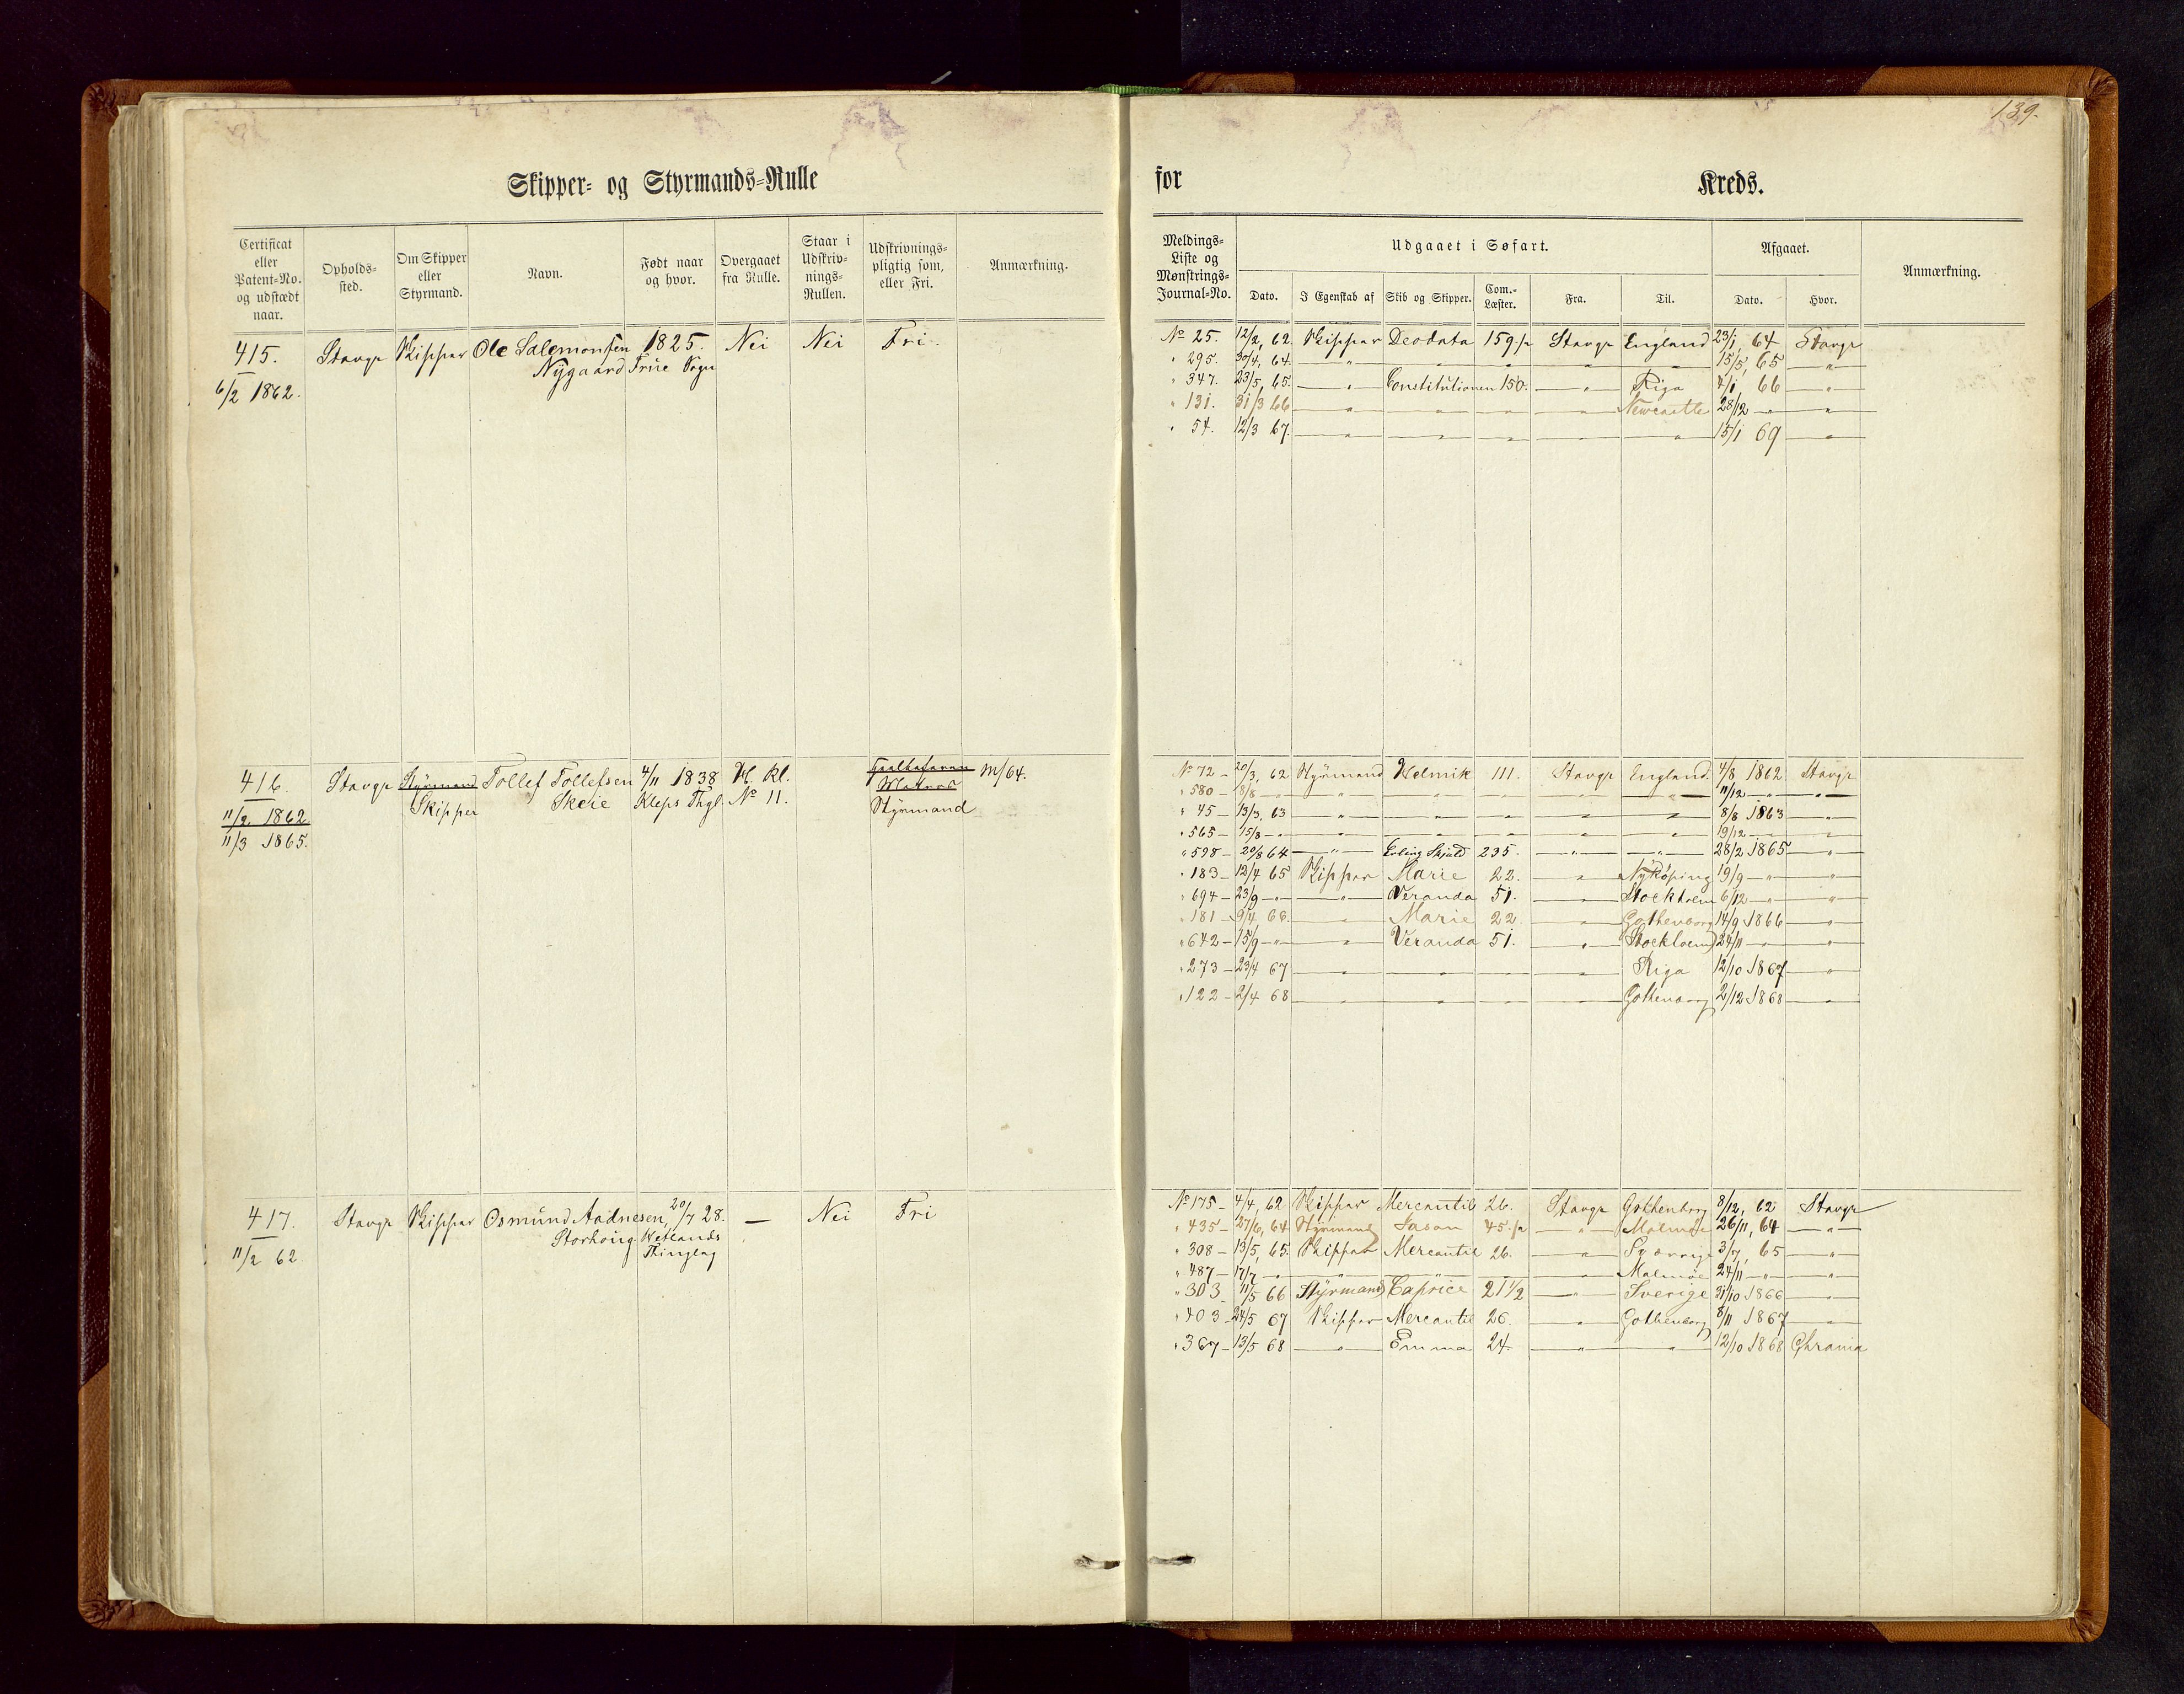 139.
Skipper- og Styrmands-Rulle for Kreds.
Certificat eller Patent-No. og udstædt naar. Opholds-sted. Om Skipper eller Styrmand. Navn. Født naar og hvor. Overgaaet fra Rulle. Staar i Udskriv-nings-Rullen. Udskrivnings-pligtig som, eller Fri. Anmærkning.
Meldings-Liste og Mønstrings-Journal-No. Udgaaet i Søfart. Afgaaet. Anmærkning.
Dato. I Egenskab af Skib og Skipper. Com.-Læster. Fra. Til. Dato. Hvor.
415. Stavgr Skipper Ole Salemonsen 1825. Nei Nei Fri.
Nygaard Friie Sogn
6/2 1862.
No 25. 12/2, 62. Skipper Deodata 159 Stavgr England 23/1, 64 Stavgr
" 295. 30/4, 64. " " " " " 15/5, 65 "
" 347. 23/5, 65. " Constitutionen 150. " Riga 4/1 66 "
" 131. 31/3 66 " " " " Newcastle 28/12 " "
" 54. 12/3 67. " " " " " 15/1 69 "
416. Stavgr Styrmand Tollef Tollefsen 4/11 1838 H. Kl. m/64.
Skipper Skeie Kleps Thgl. No 11. Matros
Styrmand
11/2 1862
11/3 1865.
No 72 - 20/3, 62 Styrmand Helmik 111. Stavgr England. 4/8 1862 Stavgr
" 580 - 8/8 - " " " " " " " 11/12 - " "
" 45 - 13/3, 63 " " " " " 8/8 1863 "
" 565 - 15/8 - " " " " " " 19/12 " "
" 598 - 20/8 64 " Erling Skjald 235. " " 28/2 1865 "
" 183 - 12/4 65 Skipper Marie 22. " Nÿköping 19/9 - " "
" 694 - 23/9 - " " Veranda 51. " Stockholm 6/12 - " "
" 181 - 9/4 66. " Marie 22 " Gothenborg 14/9 1866 "
" 642 - 15/9 - " " Veranda 51. " Stockholm 24/11 - " "
" 273 - 23/4 67 " " " " Riga 12/10 1867 "
" 122 - 2/4 68 " " " " Gothenborg 2/12 1868 "
417. Stavgr Skipper Osmund Aadnesen, 20/7 28. — Nei Fri
Storhoug Hetlands
Thinglag
11/2 62
No 175 - 4/4, 62 Skipper Mercantil 26. Stavgr Gothenborg 8/12, 62 Stavgr
" 435 - 27/6, 64 Styrmand Jason 45. " Malmøe 26/11, 64 "
" 308 - 13/5, 65. Skipper Mercantil 26. " Sverrige 3/7, 65 "
" 487 - 17/7 - " " " " " Malmøe 24/11 - " "
" 303 11/5 66 Styrmand Caprice 21 1/2 " Sverige 31/10 1866 "
" 403 - 24/5 67 Skipper Mercantil 26. " Gothenborg 8/11 1867 "
" 367 - 13/5 68 " Emma 24 " " 12/10 1868 Chrania